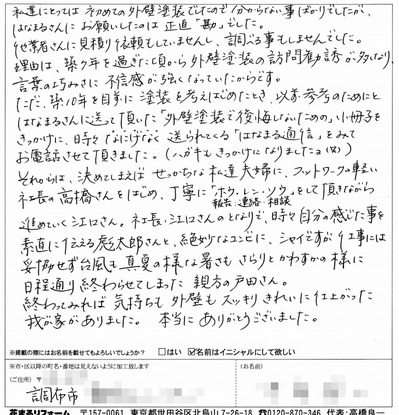 私達にとっては初めての外壁塗装でしたので分からない事ばかりでしたが、
はなまるさんにお願いしたのは正直「勘」でした。
他業者さんに見積り依頼もしていませんし、調べる事もしませんでした。
理由は、築7年を過ぎた頃から外壁塗装の訪問勧誘が多くなり、
言葉の巧みさに不信感が強くなっていたからです。
ただ、築10年を目事に塗装を考えはじめたとき、以前参考のためにと
はなまるさんに送って頂いた「外壁塗装で後悔しないための」小冊子を
きっかけに、時々なにげなく送られてくる「はなまる通信」をみて
お電話させて頂きました。(ハガキもきっかけになりましたョ(笑))
それからは、決めてしまえばせっかちな私達夫婦に、フットワークの軽い
社長の高橋さんをはじめ、丁寧に"ホウ・レン・ソウ"をして頂きながら
報告・連絡・相談
進めていく江口さん。社長・江口さんのとなりで、時々自分の感じた事を
素直に伝える炭太郎さんと、絶妙なコンビに、シャイですが仕事には
妥協せず台風も真夏の様な暑さもさらりとかわすかの様に
日程通り終わらせてしまった親方の戸田さん。
終わってみれば気持ちも外壁もスッキリきれいに仕上がった
我が家がありました。本当にありがとうございました。
※掲載の際にはお名前を載せてもよろしいでしょうか? □はい ☑名前はイニシャルにして欲しい
※市・区以降の町名・番地は見えないように加工致します
(ご住所) 〒
(お名前)
調布市
花まるリフォーム 〒157-0061 東京都世田谷区北烏山7-26-18 ☎0120-870-346 代表:高橋良一